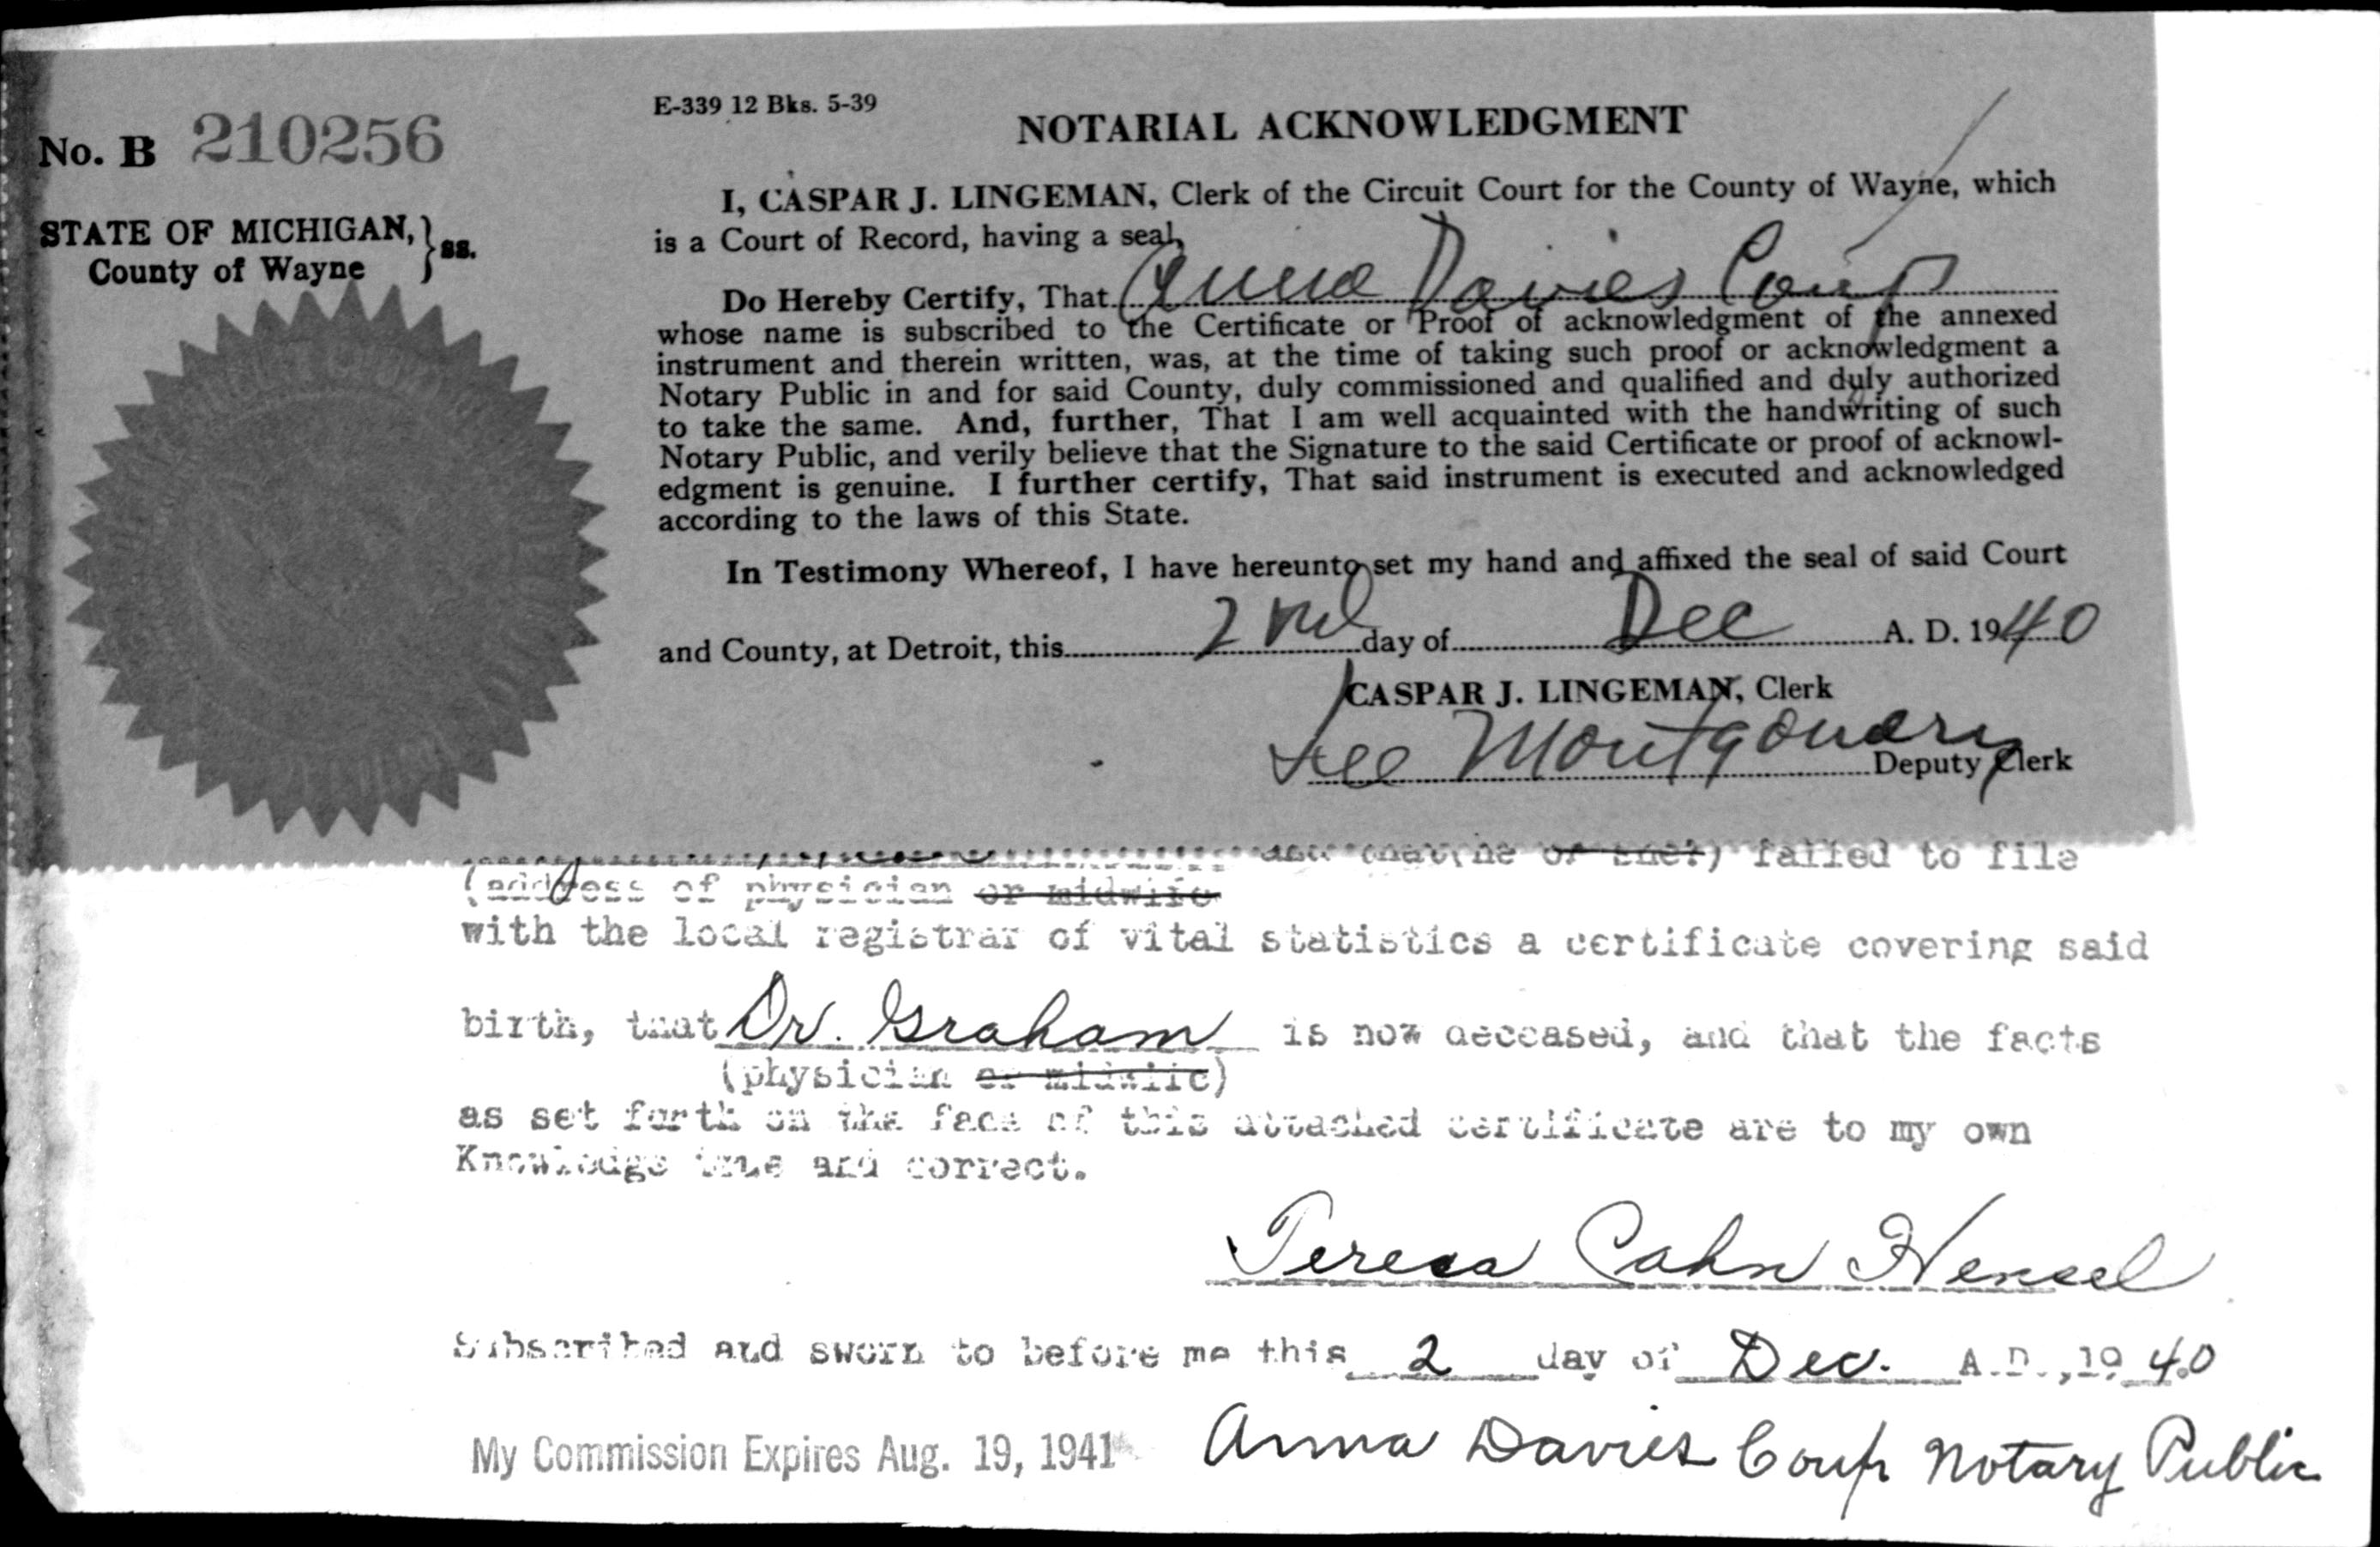 E-339 12 Bks. 5-39
No. B 210256
NOTARIAL ACKNOWLEDGMENT
STATE OF MICHIGAN, } ss.
County of Wayne
I, CASPAR J. LINGEMAN, Clerk of the Circuit Court for the County of Wayne, which
is a Court of Record, having a seal,
Do Hereby Certify, That Anna Davies Coup
whose name is subscribed to the Certificate or Proof of acknowledgment of the annexed
instrument and therein written, was, at the time of taking such proof or acknowledgment a
Notary Public in and for said County, duly commissioned and qualified and duly authorized
to take the same. And, further, That I am well acquainted with the handwriting of such
Notary Public, and verily believe that the Signature to the said Certificate or proof of acknowl-
edgment is genuine. I further certify, That said instrument is executed and acknowledged
according to the laws of this State.
In Testimony Whereof, I have hereunto set my hand and affixed the seal of said Court
and County, at Detroit, this 2nd day of Dec A. D. 1940
CASPAR J. LINGEMAN, Clerk
Lee Montgomery Deputy Clerk
and that (he or she?) failed to file
(address of physician or midwife
with the local registrar of vital statistics a certificate covering said
birth, that Dr. Graham is now deceased, and that the facts
(physician or midwife)
as set forth on the face of this attached certificate are to my own
Knowledge true and correct.
Teresa Cahn Hensel
Subscribed and sworn to before me this 2 day of Dec. A.D., 1940
My Commission Expires Aug. 19, 1941 Anna Davies Coup Notary Public